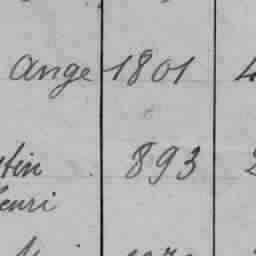 Ange 1801 4
tin 893 2
enri